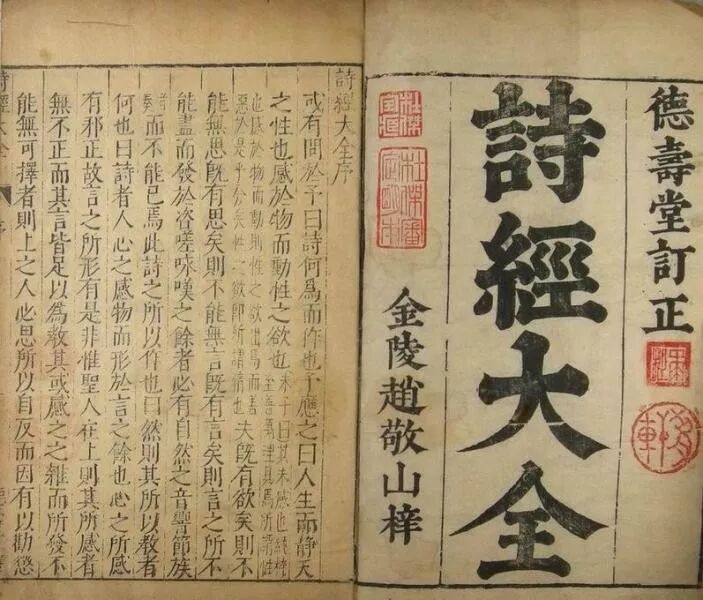 德壽堂訂正
詩經大全
金陵趙敬山梓
詩經大全序
或有問於予曰詩何為而作也予應之曰人生而靜天
之性也感於物而動性之欲也朱子曰其未感也純粹至善萬理具焉所謂性
也感於物而動則性之欲出焉而善惡於是乎分矣性之欲即所謂情也夫既有欲矣則不
能無思既有思矣則不能無言既有言矣則言之所不
能盡而發於咨嗟咏嘆之餘者必有自然之音響節族
音奏而不能已焉此詩之所以作也曰然則其所以教者
何也曰詩者人心之感物而形於言之餘也心之所感
有邪正故言之所形有是非惟聖人在上則其所感者
無不正而其言皆足以為教其或感之之雜而所發不
能無可擇者則上之人必思所以自反而因有以勸懲
詩經大全 序